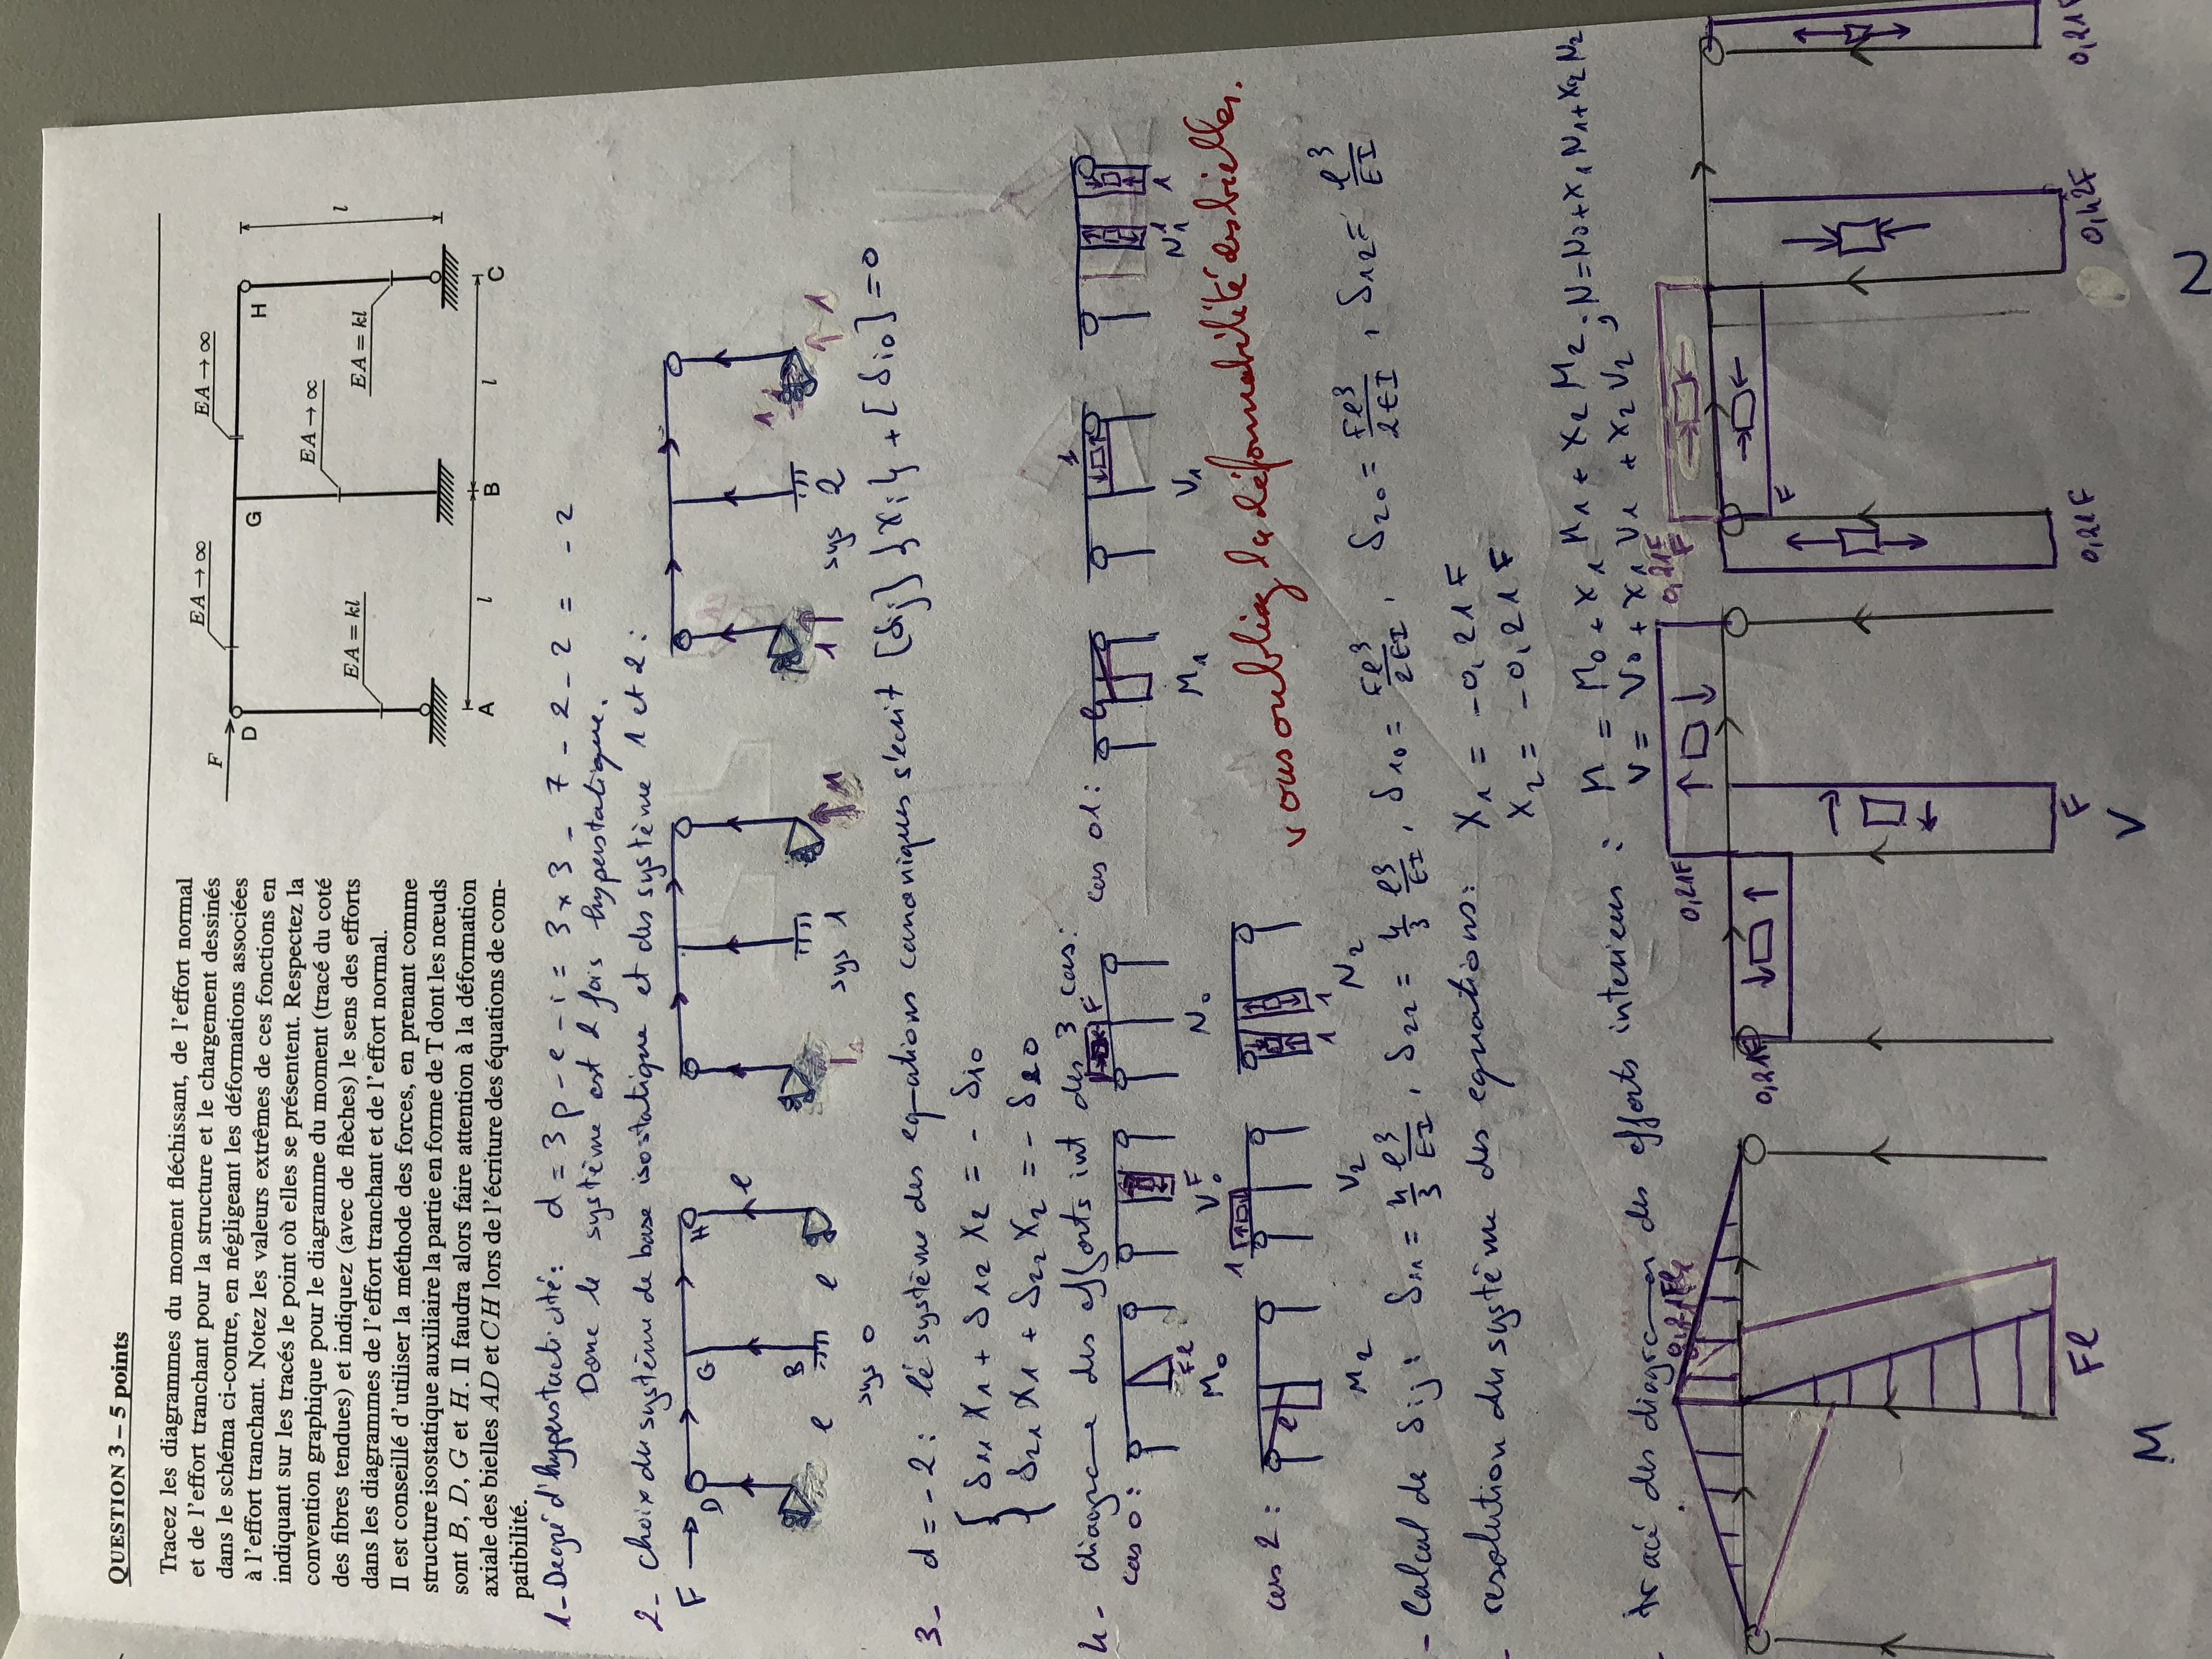 QUESTION 3 – 5 points
Tracez les diagrammes du moment fléchissant, de l'effort normal
et de l'effort tranchant pour la structure et le chargement dessinés
dans le schéma ci-contre, en négligeant les déformations associées
à l'effort tranchant. Notez les valeurs extrêmes de ces fonctions en
indiquant sur les tracés le point où elles se présentent. Respectez la
convention graphique pour le diagramme du moment (tracé du coté
des fibres tendues) et indiquez (avec de flèches) le sens des efforts
dans les diagrammes de l'effort tranchant et de l'effort normal.
Il est conseillé d'utiliser la méthode des forces, en prenant comme
structure isostatique auxiliaire la partie en forme de T dont les nœuds
sont B, D, G et H. Il faudra alors faire attention à la déformation
axiale des bielles AD et CH lors de l'écriture des équations de com-
patibilité.
EA → ∞ EA → ∞
F
D G H
EA → ∞
EA = kl EA = kl
l
A l B l C
1- Degré d'hyperstacticité: d = 3p - e - i = 3×3 - 7 - 2 - 2 = - 2
Donc le système est 2 fois hyperstatique.
2- choix du système de base isostatique et des système 1 et 2 :
F D G H
l
B
l l
sys 0
1 sys 1 1
1 sys 2 1 1
3- d = - 2 : le système des equations canoniques s'ecrit [δij] {Xi} + [δi0] = 0
δ11 X1 + δ12 X2 = - δ10
δ21 X1 + δ22 X2 = - δ20
4- diagrame des efforts int des 3 cas:
cas 0 : Fl F F
M0 V0 N0
cas 01 : l 1 1 1
M1 V1 N1
cas 2 : l 1 1 1
M2 V2 N2
vous oubliez la déformabilité des bielles.
- Calcul de δij : δ11 = 4/3 l³/EI , δ22 = 4/3 l³/EI , δ10 = Fl³/2EI , δ20 = Fl³/2EI , δ12 = l³/EI
- resolution du système des equations: X1 = -0,21 F
X2 = -0,21 F
- tracé des diagrames des efforts interieurs : M = M0 + X1 M1 + X2 M2 ; N = N0 + X1 N1 + X2 N2
V = V0 + X1 V1 + X2 V2
0,21Fl
Fl
M
0,21F
0,21F
F
V
0,21F
F
F
0,21F
0,42F
0,21F
N